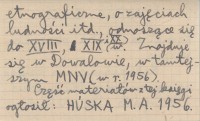 etnograficzne, o zajęciach
ludności itd., odnoszące się
do XVIII, XIX i XX w. Znajduje
się w Dovalowie, w tantej-
szym MNV (w r. 1956).
Część materiałów z tej księgi
ogłosił: HÚSKA M. A. 1956.